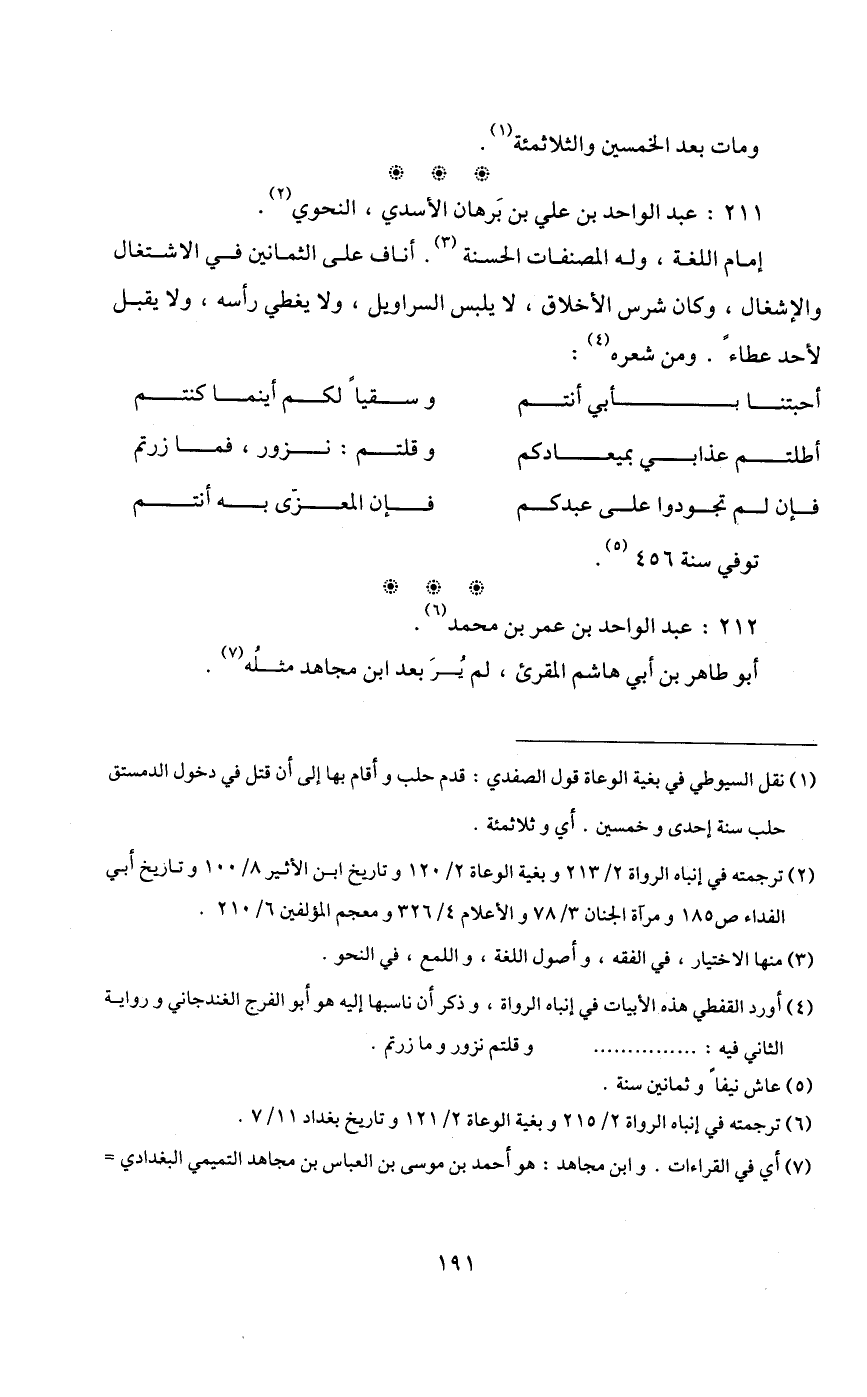 ومات بعد الخمسين والثلاثمئة(١) .
٢١١ : عبد الواحد بن علي بن بَرهان الأسدي ، النحوي(٢) .
إمام اللغة ، وله المصنفات الحسنة (٣). أناف على الثمانين في الاشتغال
والإشغال ، وكان شرس الأخلاق ، لا يلبس السراويل ، ولا يغطي رأسه ، ولا يقبل
لأحد عطاءً . ومن شعره(٤) :
أحبتنا بأبي أنتم و سقياً لكم أينما كنتم
أطلتم عذابي بميعادكم و قلتم : نزور ، فما زرتم
فإن لم تجودوا على عبدكم فإن المعزّى به أنتم
توفي سنة ٤٥٦ (٥).
٢١٢ : عبد الواحد بن عمر بن محمد(٦) .
أبو طاهر بن أبي هاشم المقرئ ، لم يُرَ بعد ابن مجاهد مثلُه(٧) .
(١) نقل السيوطي في بغية الوعاة قول الصفدي : قدم حلب و أقام بها إلى أن قتل في دخول الدمستق
حلب سنة إحدى و خمسين . أي و ثلاثمئة .
(٢) ترجمته في إنباه الرواة ٢/ ٢١٣ و بغية الوعاة ٢/ ١٢٠ و تاريخ ابن الأثير ٨/ ١٠٠ و تاريخ أبي
الفداء ص١٨٥ و مرآة الجنان ٣/ ٧٨ و الأعلام ٤/ ٣٢٦ و معجم المؤلفين ٦/ ٢١٠ .
(٣) منها الاختيار ، في الفقه ، و أصول اللغة ، و اللمع ، في النحو .
(٤) أورد القفطي هذه الأبيات في إنباه الرواة ، و ذكر أن ناسبها إليه هو أبو الفرج الغندجاني و رواية
الثاني فيه : ............... و قلتم نزور و ما زرتم .
(٥) عاش نيفاً و ثمانين سنة .
(٦) ترجمته في إنباه الرواة ٢/ ٢١٥ و بغية الوعاة ٢/ ١٢١ و تاريخ بغداد ١١/ ٧ .
(٧) أي في القراءات . و ابن مجاهد : هو أحمد بن موسى بن العباس بن مجاهد التميمي البغدادي =
١٩١